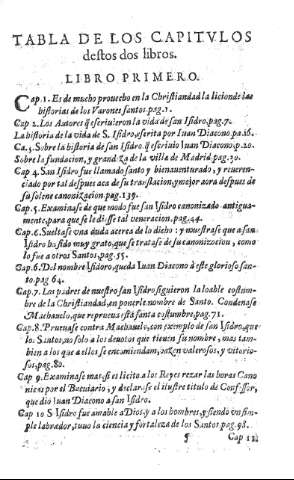 TABLA DE LOS CAPITVLOS
destos dos libros.
LIBRO PRIMERO.
Cap. 1. Es de mucho prouecho en la Christiandad la licion de las
historias de los Varones santos. pag. 1.
Cap 2. Los Autores q̃ escriuieron la vida de san Isidro, pag. 7.
La historia de la vida de S. Isidro, escrita por Iuan Diacono. pa. 16.
Ca. 3. Sobre la historia de san Isidro. q̃ escriuio Iuan Diacono. p. 20.
Sobre la fundacion, y grandeza de la villa de Madrid. pag. 30.
Cap 4. San Isidro fue llamado santo y bienauenturado, y reuerenciado
por tal despues aca de su traslacion, y mejor aora despues de
su solene canonizacion. pag. 139.
Cap. 5. Examinase de que modo fue san Isidro canonizado antiguamente,
para que se le diesse tal veneracion. pag. 44.
Cap. 6. Sueltase vna duda acerca de lo dicho: y muestrase que a san
Isidro ha sido muy grato, que se tratase de su canonizacion, como
lo fue a otros Santos, pag. 55.
Cap. 6. Del nombre Isidoro, que da Iuan Diacono à este glorioso santo.
pag 64.
Cap. 7. Los padres de nuestro san Isidro siguieron la loable costumbre
de la Christiandad, en ponerle nombre de Santo. Condenase
Machauelo, que reprueua está santa costumbre. pag. 71.
Cap. 8. Prueuase contra Machauelo, con exemplo de san Isidro, que
los Santos, no solo a los deuotos que tienen su nombre, mas tambien
a los que a ellos se encomiendan, hazen valerosos, y vitoriosos,
pag. 80.
Cap 9. Examinase mas, si es licito a los Reyes rezar las horas Canonicas
por el Breuiario, y declarase el ilustre titulo de Confessor,
que dio Iuan Diacono a san Isidro.
Cap 10 S Isidro fue amable a Dios, y a los hombres, y siendo vn simple
labrador, tuuo la ciencia y fortaleza de los Santos pag. 98.
¶ Cap 11